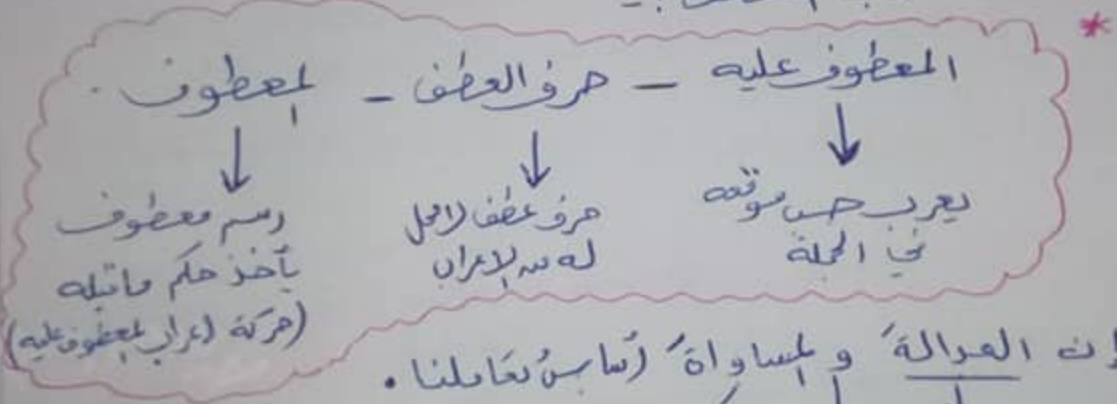 المعطوف عليه - حرف العطف - المعطوف .
يعرب حسب موقعه
في الجملة
حرف عطف لا محل
له من الإعراب
اسم معطوف
يأخذ حكم ما قبله
(حركة إعراب المعطوف عليه)
إن العدالةَ و المساواةَ أساسُ تعاملنا .